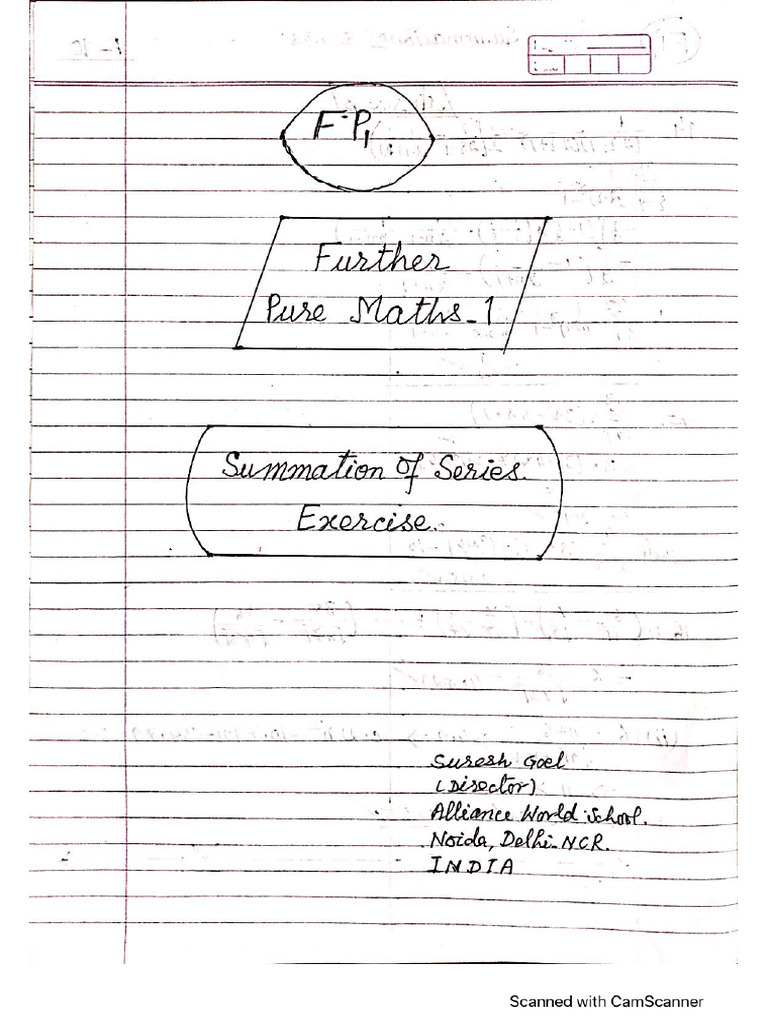 F.P1
Further
Pure Maths-1
Summation of Series.
Exercise.
Suresh Goel
(Director)
Alliance World School.
Noida, Delhi-NCR.
INDIA
Scanned with CamScanner